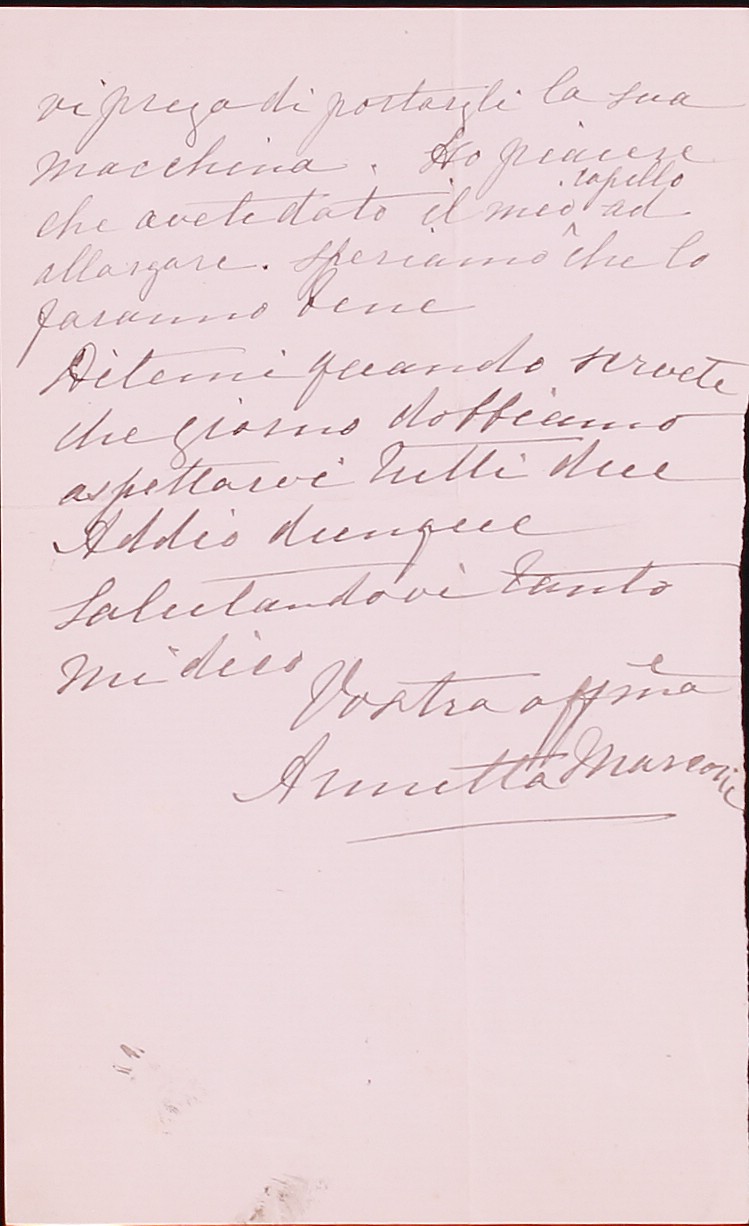 vi prega di portargli la sua
macchina. Ho piacere
che avete dato il mio capello ad
allargare. Speriamo che lo
faranno bene
Ditemi quando servete
che giorno dobbiamo
aspettarvi tutti due
Addio dunque
Salutandovi tanto
mi dico
Vostra affma
Annetta Marconi